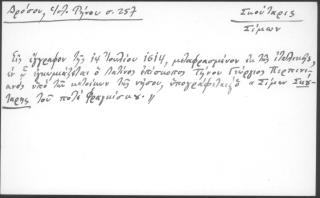 Δρόσου, Ἱστ. Τήνου σ. 257
Σκούταρης
Σίμων
Εἰς ἔγγραφον τῆς 14 Ἰουλίου 1614, μεταφρασμένον ἐκ τῆς ἰταλικῆς,
ἐν ᾧ ἐγκωμιάζεται ὁ Λατῖνος ἐπίσκοπος Τήνου Γεώργιος Περπινι-
ανὸς ὑπὸ τῶν κατοίκων τῆς νήσου, ὑπογράφεται ὁ «Σίμων Σκού-
ταρης τοῦ ποτὲ Φραγκίσκου».